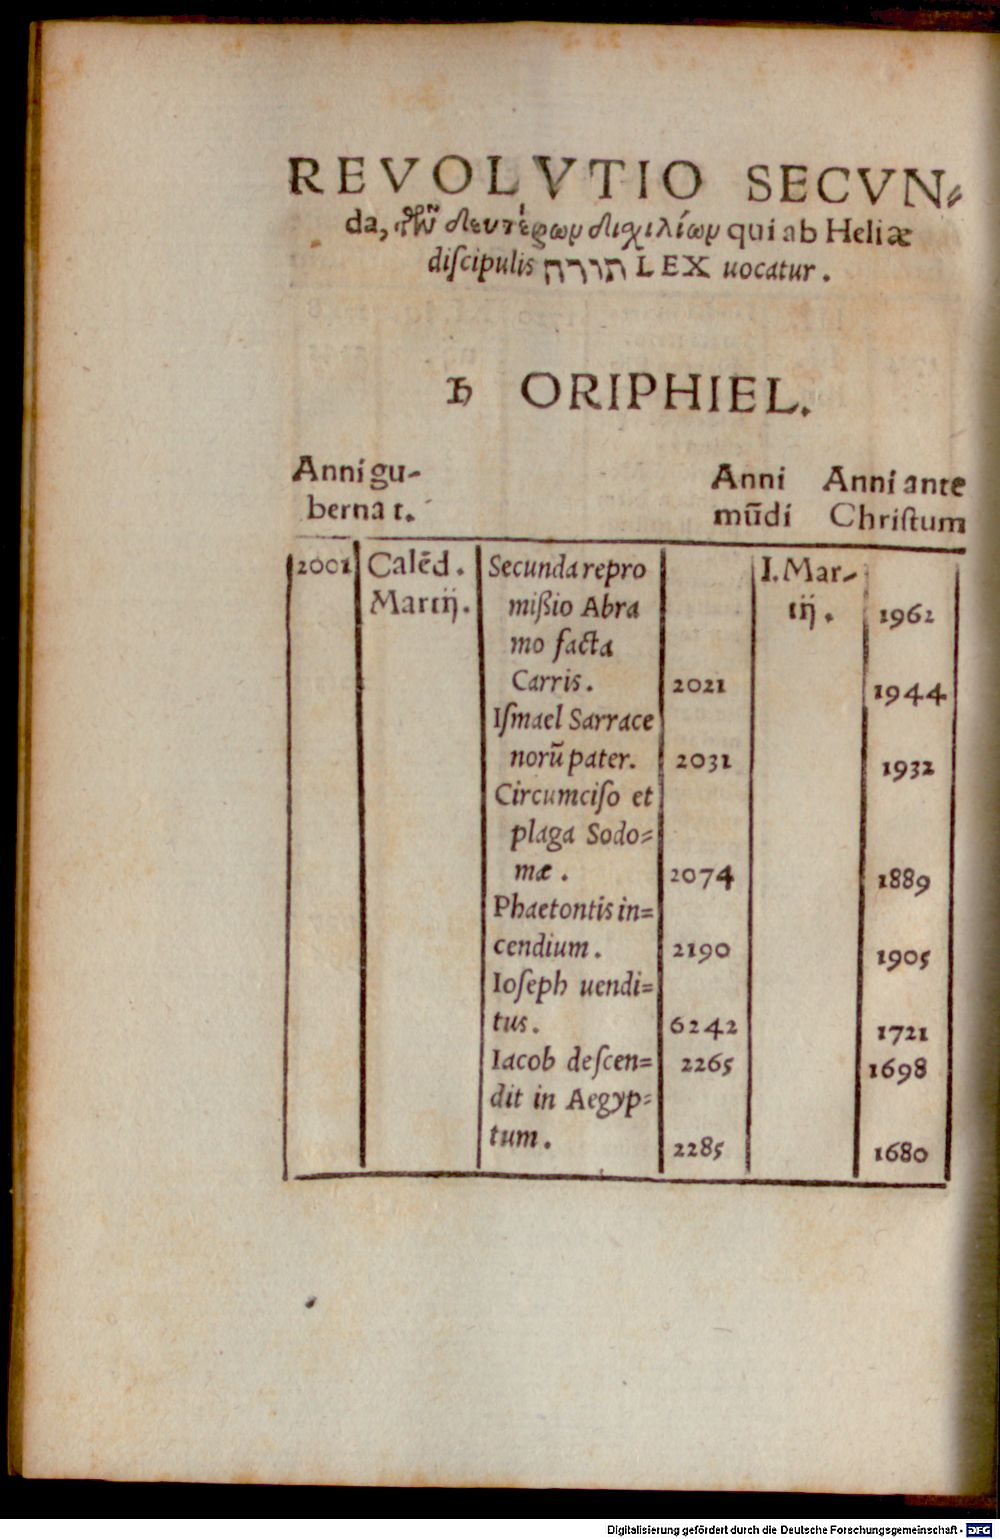 REVOLVTIO SECVN⸗
da, τῶν δευτέρων διχιλίων qui ab Heliæ
diſcipulis תורה LEX uocatur.
♄ ORIPHIEL.
Anni gu- Anni Anni ante
bernat. mūdi Chriſtum
2001 Calēd. Secunda repro I. Mar-
Martij. mißio Abra tij. 1962
mo facta
Carris. 2021 1944
Iſmael Sarrace
norū pater. 2031 1932
Circumciſo et
plaga Sodo⸗
mæ. 2074 1889
Phaetontis in=
cendium. 2190 1905
Ioſeph uendi=
tus. 6242 1721
Iacob deſcen= 2265 1698
dit in Aegyp⸗
tum. 2285 1680
Digitalisierung gefördert durch die Deutsche Forschungsgemeinschaft - DFG